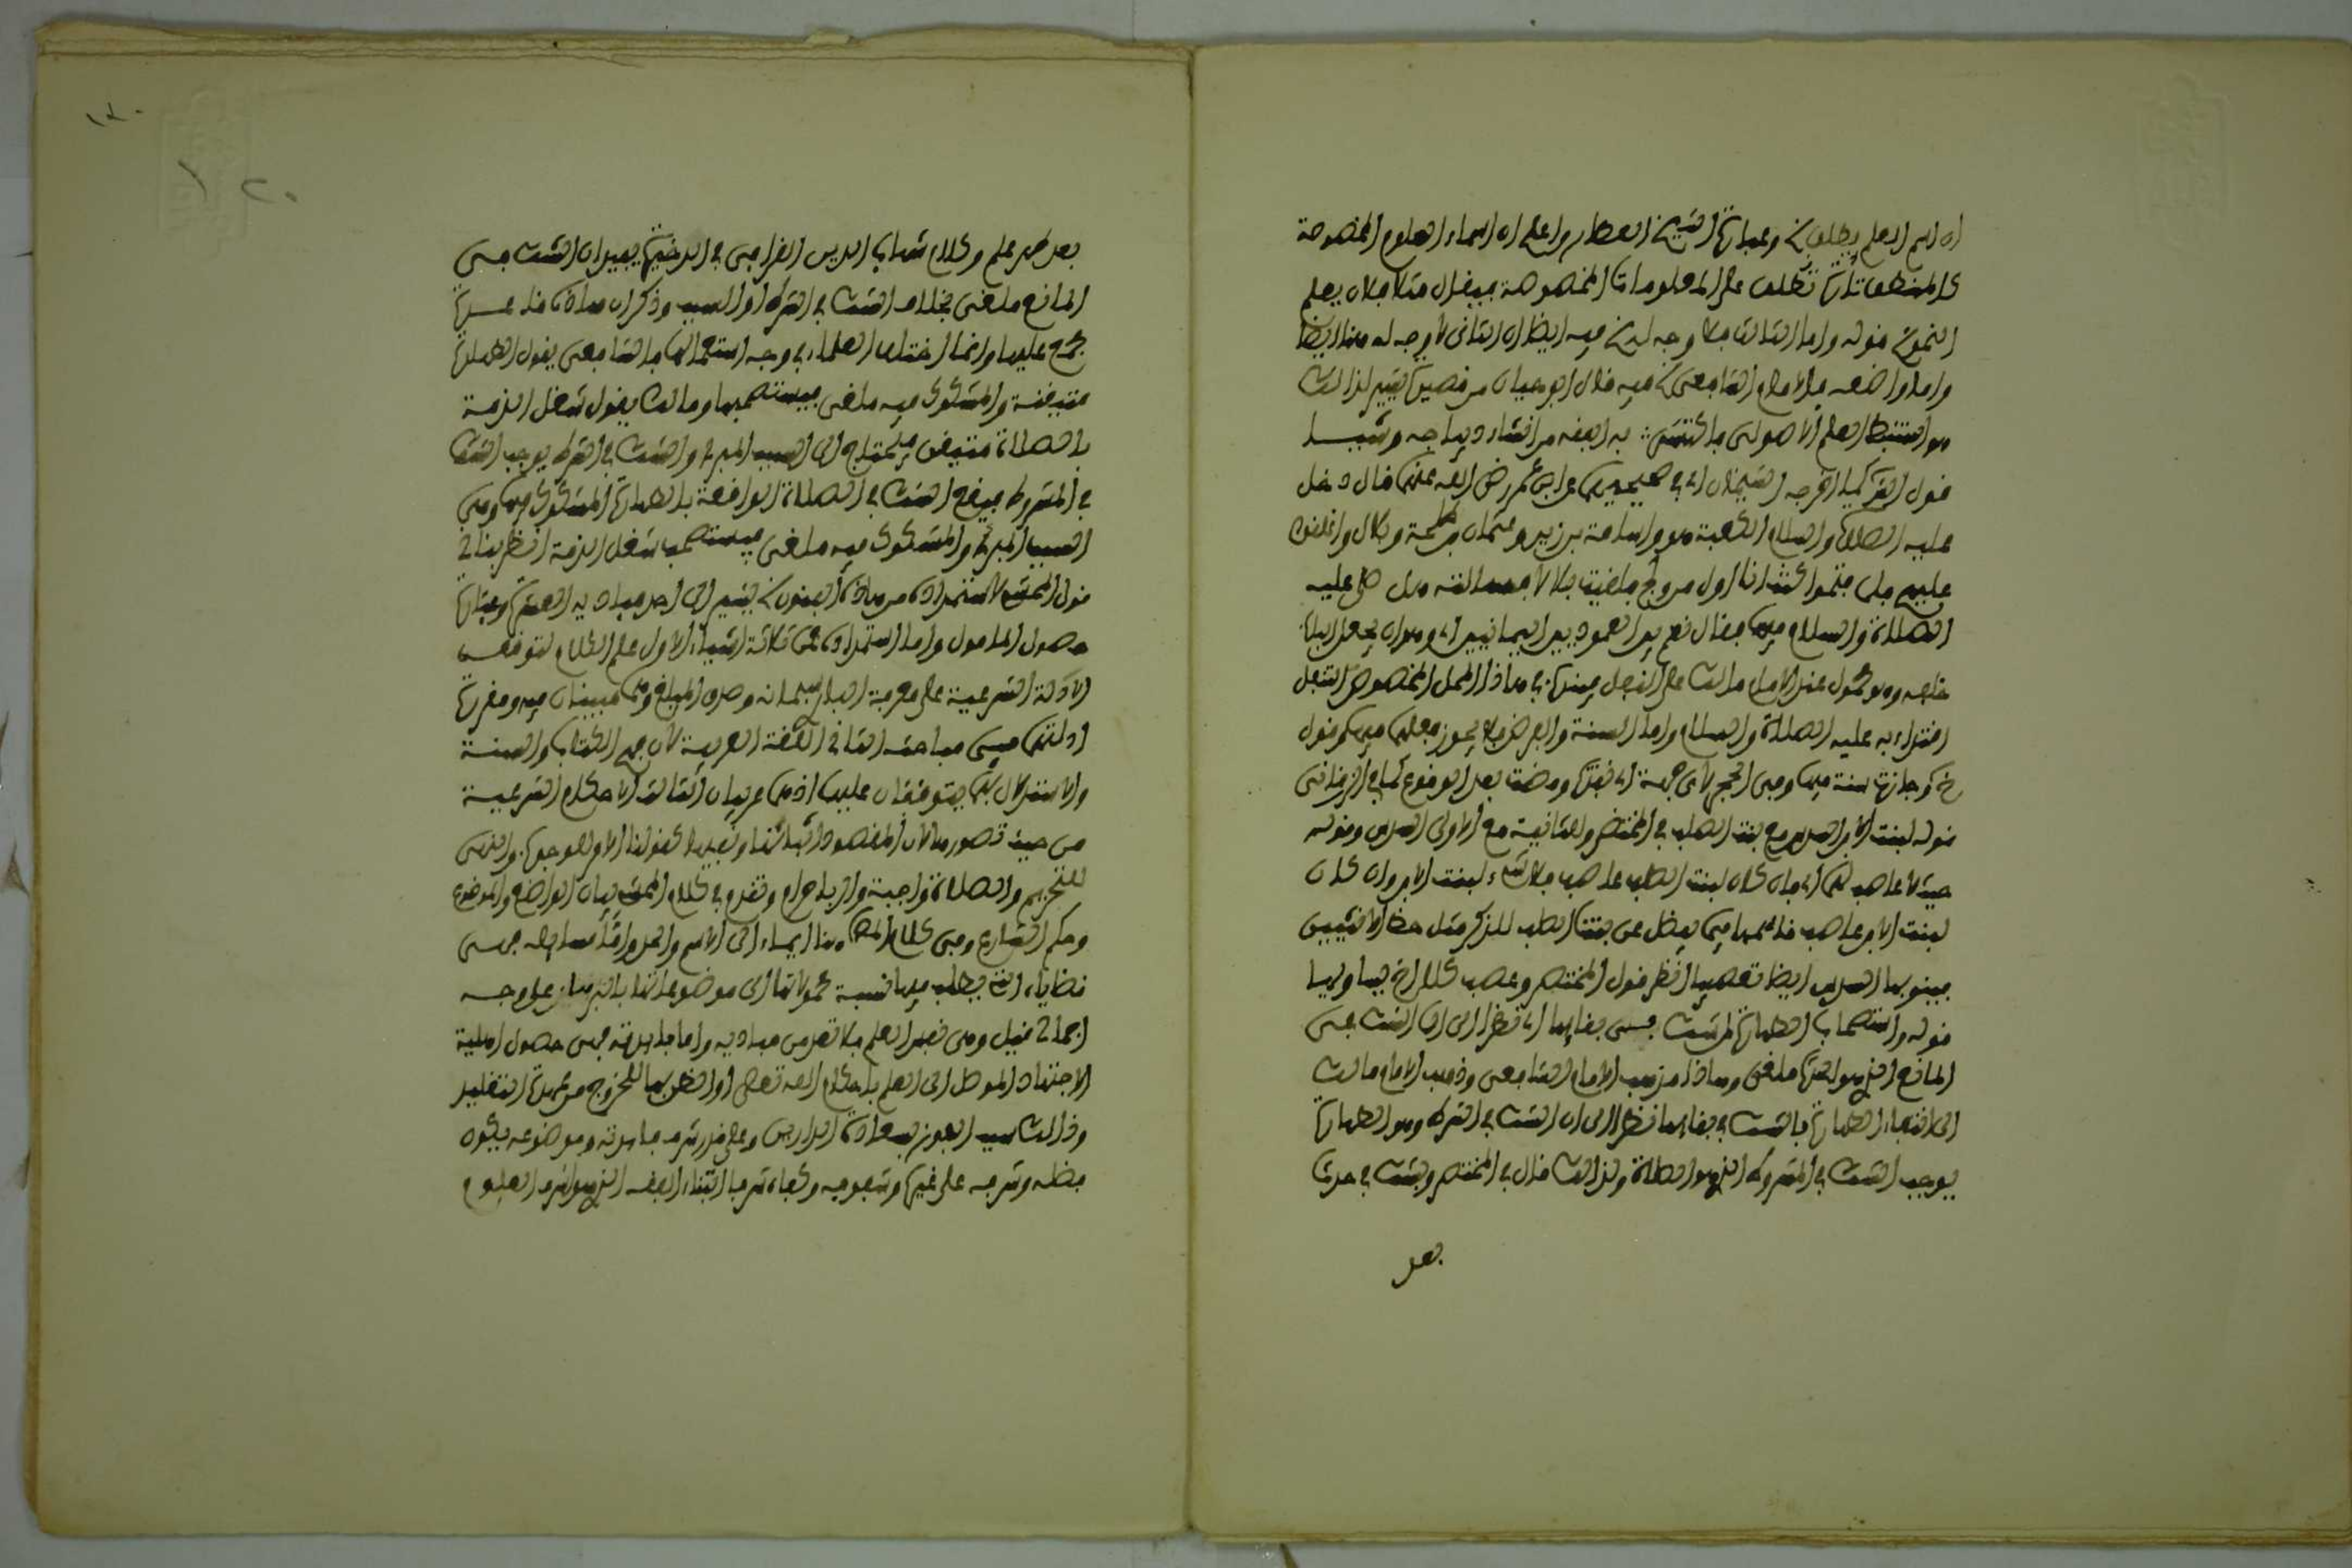 ان اسم العلم يطلق الخ وعبارة الشيخ العطار واعلم ان اسماء العلوم المخصوصة
كالمنطق تارة تطلق على المعلومات المخصوصة فيقال مثلا فلان يعلم
النحو الخ قوله واما الثالث فلا وجه له الخ فيه ايضا ان الثاني لا وجه له هنا ايضا
واما واضعه فالامام الشافعي الخ فيه قال ابو حيان من قصيدة يشير لذلك
هو استنبط العلم الاصولي فاكتسى به الفقه من انشاء ديباجه وشيا
قول اخرجه الشيخان اي في صحيحيهما عن ابن عمر رضي الله عنهما قال دخل
عليه الصلاة والسلام الكعبة هو واسامة بن زيد وعثمان بن طلحة وبلال واغلقوا
عليهم فلما فتحوا كنت انا اول من ولج فلقيت بلالا فسالته هل صلى عليه
الصلاة والسلام فيها فقال نعم بين العمودين اليمانيين اي وهو ان يجعل الباب
خلفه وهو محمول عند الامام مالك على النفل فيندب في هذا المحل المخصوص التنفل
اقتداء به عليه الصلاة والسلام واما السنة والفرض فلا يجوز فعلهما فيها وقول
خ وجازت سنة فيها وفي الحجر لاي جهة اي نفذت ومضت بعد الوقوع كما في الزرقاني
قوله لبنت الابن السدس مع بنت الصلب في المختصر وللثانية مع الاولى السدس وقوله
حيث لا عاصب لهما اي فان كان لبنت الصلب عاصب فلا شيء لبنت الابن وان كان
لبنت الابن عاصب قاسمها فيما يفضل عن بنت الصلب للذكر مثل حظ الانثيين
فيبنو بها السدس ايضا تعصيبا انظر قول المختصر وعصب كلا اخ يساويها
قوله واستصحاب الطهارة لمن شك في بقائها اي نظرا الى ان الشك في
المانع الذي هو الحدث ملغى وهذا مذهب الامام الشافعي وذهب الامام مالك
الى انتفاء الطهارة بالشك في بقائها نظرا الى ان الشك في الشرط وهو الطهارة
يوجب الشك في المشروط الذي هو الصلاة ولذلك قال في المختصر وبشك في حدث
بعد
١٢٠
١٢٠
بعد طهر علم وكلام شهاب الدين القرافي في الذخيرة يفيد ان الشك في
المانع ملغى بخلاف الشك في الشرط او السبب وذكر ان هذه قاعدة
مجمع عليها وانما اختلف العلماء في وجه استعمالها فالشافعي يقول الطهارة
متيقنة والمشكوك فيه ملغى فيستصحبها ومالك يقول شغل الذمة
بالصلاة متيقن فيحتاج الى السبب المبرئ والشك في الشرط يوجب الشك
في المشروط فيقع الشك في الصلاة الواقعة بالطهارة المشكوك فيها وهي
السبب المبرئ والمشكوك فيه ملغى فيستصحب شغل الذمة انظر بناني
قول المحشي لاستمداده من هذه الفنون الخ يشير الى احد مباديه العشرة وعبارة
حصول المامول واما استمداده فمن ثلاثة اشياء الاول علم الكلام لتوقف
الادلة الشرعية على معرفة الباري سبحانه وصدق المبلغ وهما مبينان فيه ومقررة
ادلتهما في مباحثه الثاني اللغة العربية لان فهم الكتاب والسنة
والاستدلال بهما يتوقفان عليها اذ هما عربيان الثالث الاحكام الشرعية
من حيث تصورها لان المقصود اثباتها ونفيها كقولنا الامر للوجوب والنهي
للتحريم والصلاة واجبة والربا حرام وتقدم في كلام المحشي بيان الواضع والموضوع
وحكم الشارع وفي كلام المص هنا ايماء الى الاسم والحد واما مسائله فهي
قضاياه التي يطلب فيها نسبة محمولاتها الى موضوعاتها بالبرهان على وجه
اجمالي قيل وهي نفس العلم فلا تعد من مباديه واما فائدته فهي حصول اهلية
الاجتهاد الموصل الى العلم باحكام الله تعالى او الظن بها للخروج من عهدة التقليد
وذلك سبب الفوز بسعادة الدارين وعلى قدر شرف فائدته وموضوعه يكون
فضله وشرفه على غيره وشفوفه وكفاه شرفا ابتناء الفقه الذي هو اشرف العلوم